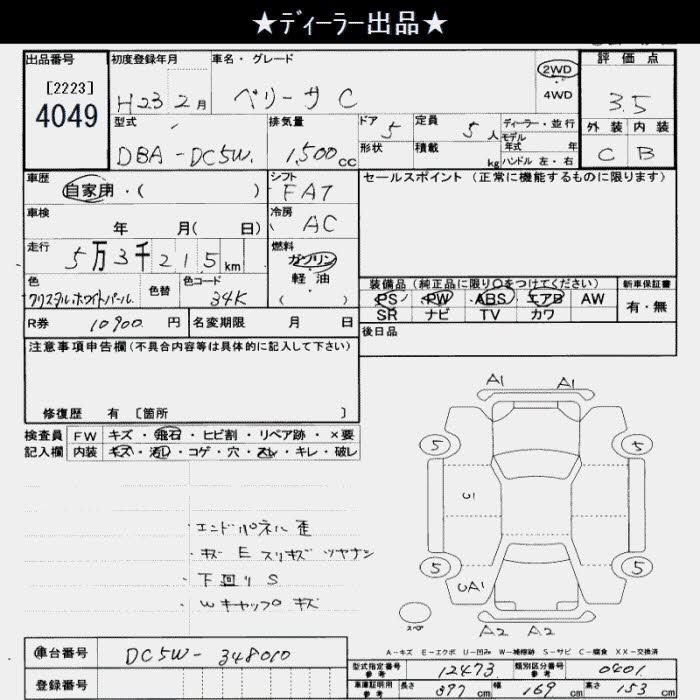 ★ディーラー出品★
出品番号
[2223]
4049
初度登録年月
H23 2月
車名・グレード
ベリーサ C
2WD
4WD
評価点
3.5
外装 内装
C B
型式
DBA-DC5W.
排気量
1,500cc
ドア 5
形状
定員 5人
積載 kg
ディーラー・並行
モデル年式 年
ハンドル 左・右
車歴
自家用・( )
シフト
FAT
セールスポイント(正常に機能するものに限ります)
車検
年 月( 日)
冷房
AC
走行
5万3千215km
燃料
ガソリン
軽・油
( )
色
クリスタルホワイトパール
色替
色コード
34K
装備品(純正品に限り○をつけてください)
PS PW ABS エアB AW
SR ナビ TV カワ
新車保証書
有・無
R券 10900 円
名変期限 月 日
後日品
注意事項申告欄(不具合内容等は具体的に記入して下さい)
修復歴 有 〔箇所 〕
検査員記入欄
FW キズ・飛石・ヒビ割・リペア跡・×要
内装 キズ・汚レ・コゲ・穴・スレ・キレ・破レ
・エンドパネル歪
・キズ E スリキズ ツヤナシ
・下回り S
・Wキャップ キズ
A1 A1
5 5
U1
5 5
UA1
スペア
A2 A2
A-キズ E-エクボ U-凹み W-補修跡 S-サビ C-腐食 XX-交換済
車台番号 DC5W-348010
登録番号
型式指定番号 参考 12473
類別区分番号 参考 0401
車庫証明用 参考 長さ 397cm 幅 169cm 高さ 153cm